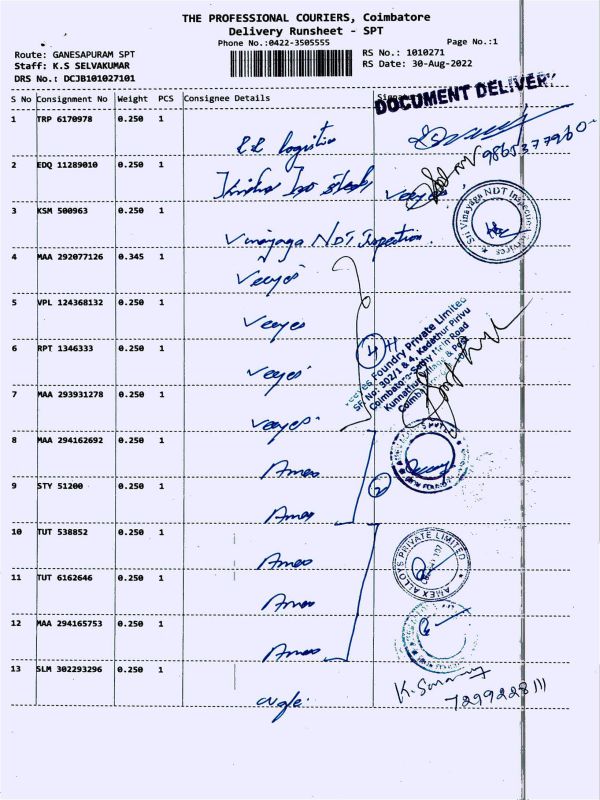 THE PROFESSIONAL COURIERS, Coimbatore
Delivery Runsheet - SPT
Phone No.:0422-3505555
Page No.:1
Route: GANESAPURAM SPT
Staff: K.S SELVAKUMAR
DRS No.: DCJB101027101
RS No.: 1010271
RS Date: 30-Aug-2022
S No Consignment No Weight PCS Consignee Details
DOCUMENT DELIVER
1 TRP 6170978 0.250 1
9865377960
2 EDQ 11289010 0.250 1
Veeyes
3 KSM 500963 0.250 1 Vinayaga NDT Inspection
Sri Vinayaga NDT Inspection Services
4 MAA 292077126 0.345 1 Veeyes
5 VPL 124368132 0.250 1 Veeyes
6 RPT 1346333 0.250 1 Veeyes
4
Foundry Private Limited
SF No: 302/1 & 4, Kadathur Pirivu
Coimbatore-Sathy Main Road
7 MAA 293931278 0.250 1 Veeyes
8 MAA 294162692 0.250 1 Amex
9 STY 51200 0.250 1 Amex
2
10 TUT 538852 0.250 1 Amex
AMEX ALLOYS PRIVATE LIMITED
11 TUT 6162646 0.250 1 Amex
12 MAA 294165753 0.250 1 Amex
13 SLM 302293296 0.250 1
7299228111